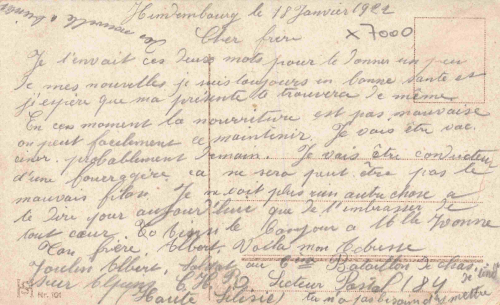 Hindenbourg le 18 Janvier 1922
x 7000
Cher frère
Je t'envoit ces deux mots pour te donner un peu
de mes nouvelles je suis toujours en bonne santé et
j'espère que ma présente te trouvera de même
En ces moment la nourriture est pas mauvaise
on peut facilement ce maintenir. Je vais être vac
ciner probablement demain. Je vais être conducteur
d'une fourragère ça ne sera peut être pas le
mauvais filon. Je ne voit plus rien autre chose a
te dire pour aujourd'hui que de t'embrasser de
tout cœur. Bonjour a Mlle Yvonne
Ton frère Albert. Voilla mon adresse
Albert, Soldat au Bataillon de chas.
Secteur Postal 184
Haute Silésie
tu n'a pas besoin de mettre
de timb
Nr. 101